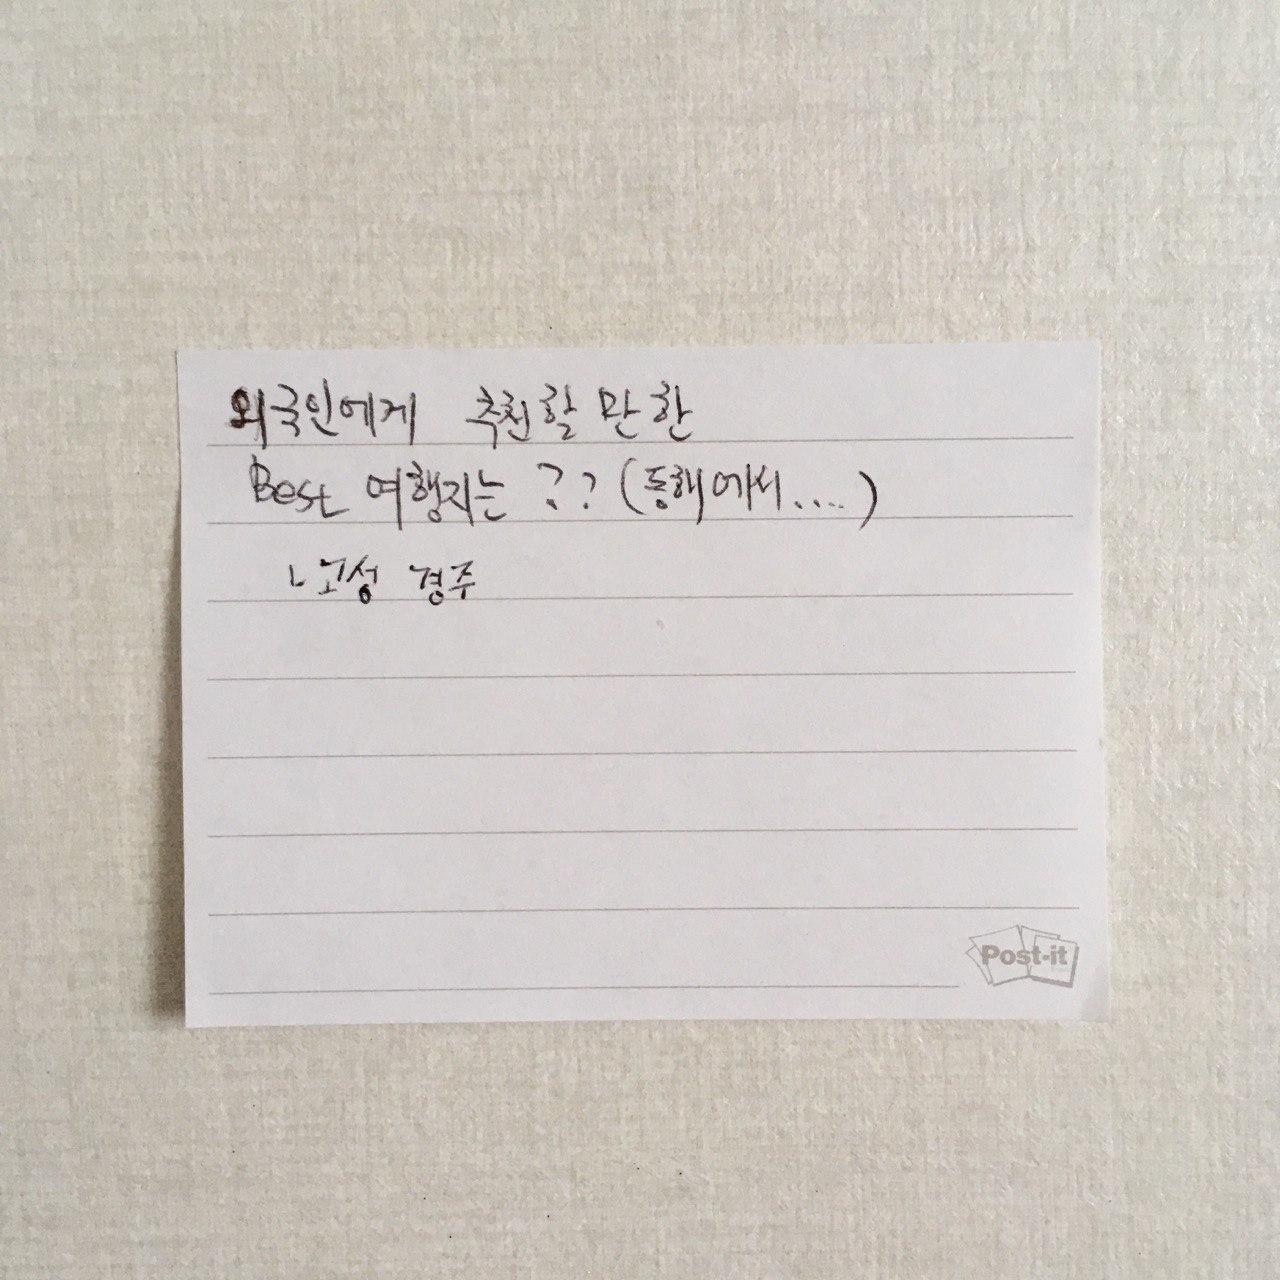 외국인에게 추천할 만한
Best 여행지는 ?? (동해에서....)
ㄴ 고성 경주
Post-it